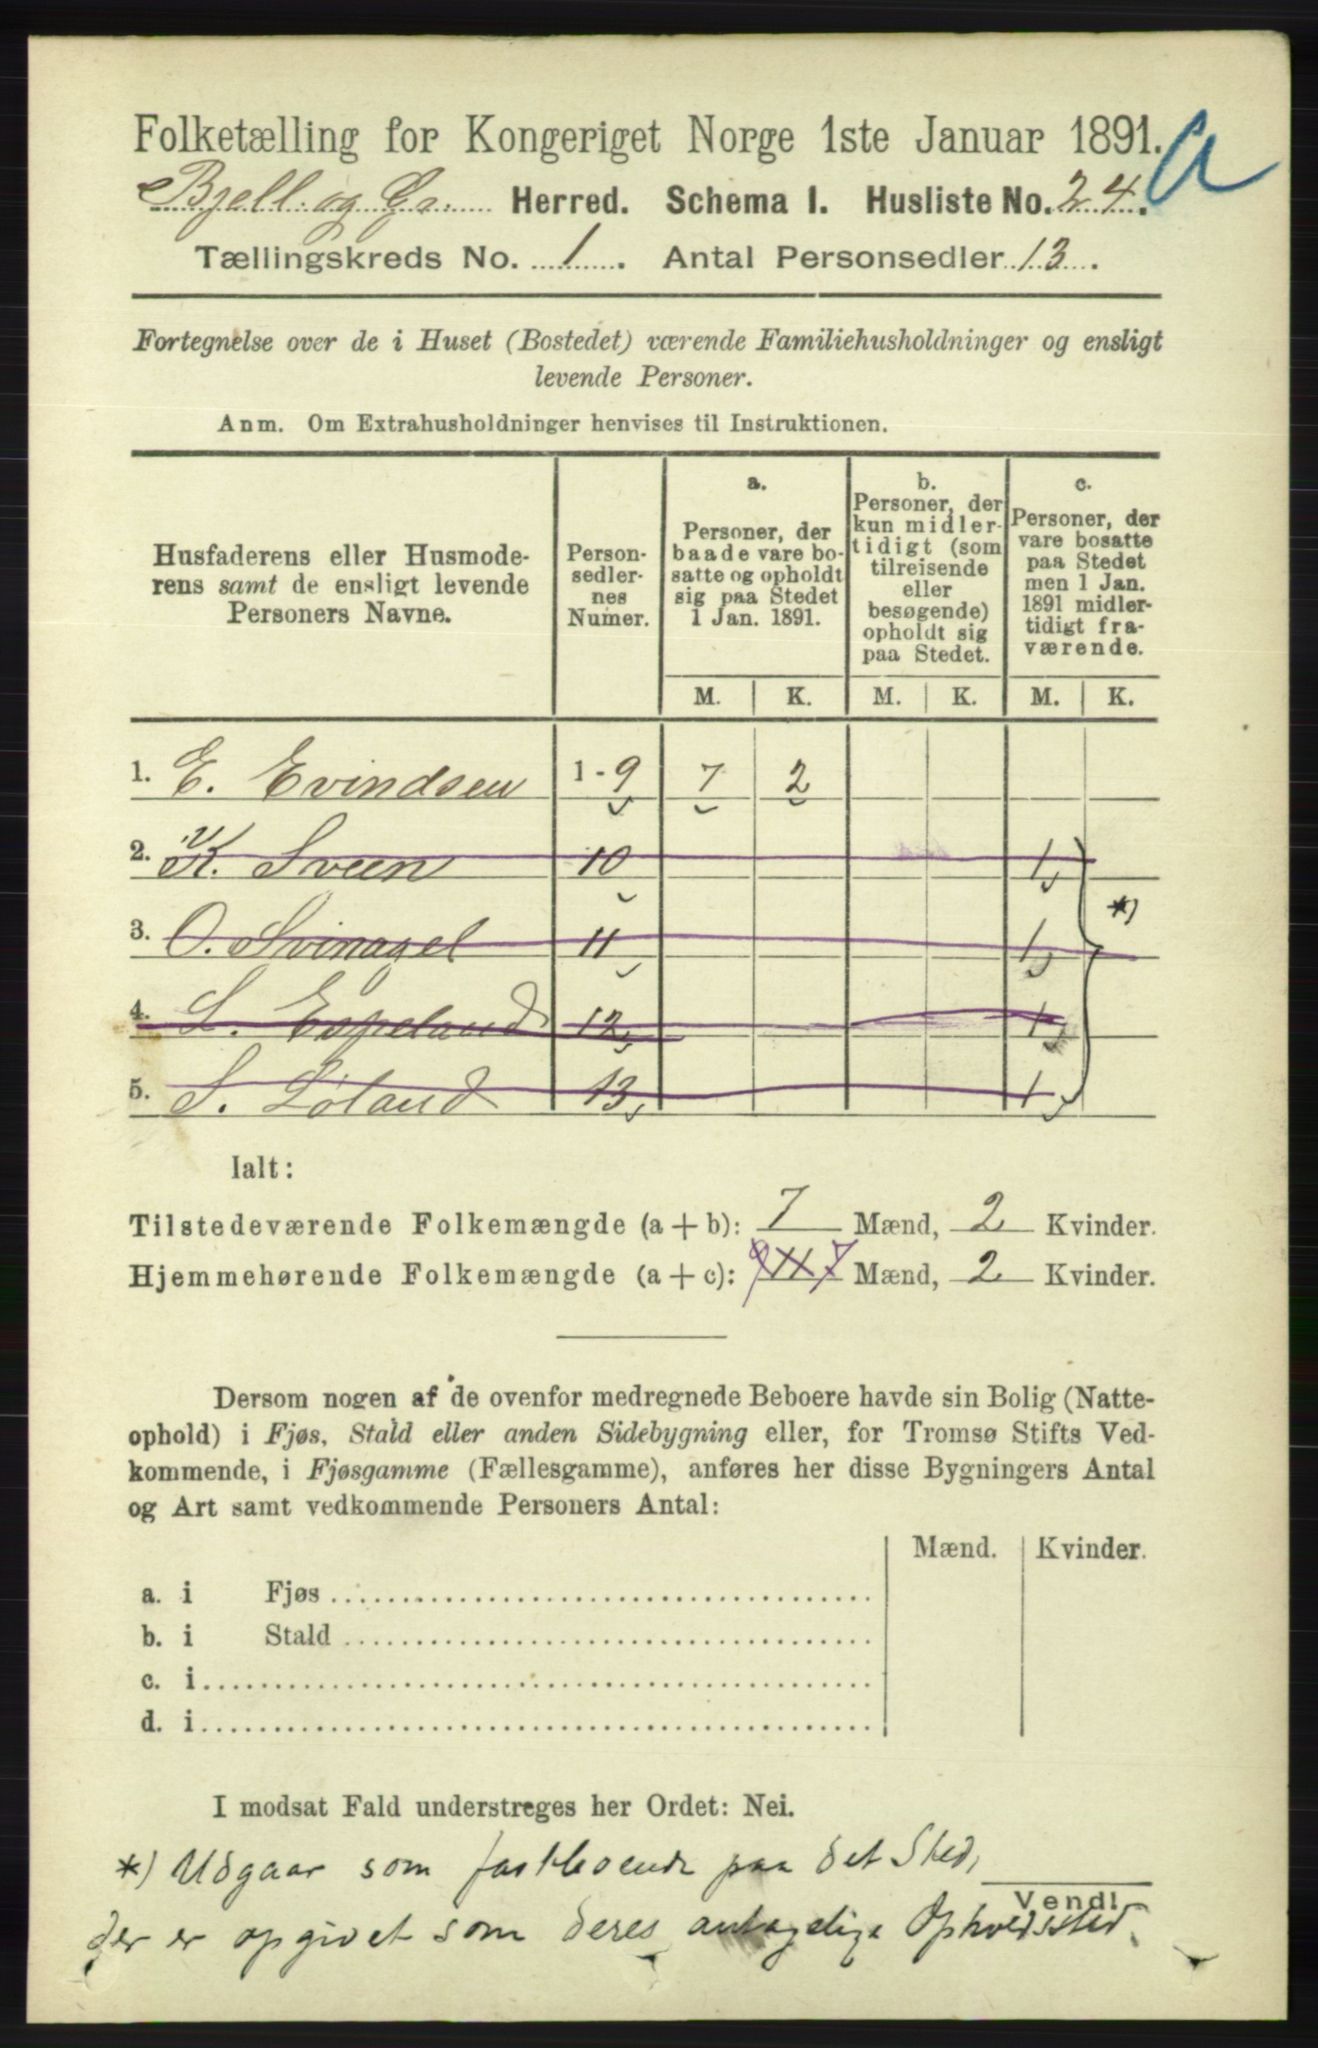 Folketælling for Kongeriget Norge 1ste Januar 1891. a
Bjell. og Gr. Herred. Schema I. Husliste No. 24.
Tællingskreds No. 1. Antal Personsedler 13.
Fortegnelse over de i Huset (Bostedet) værende Familiehusholdninger og ensligt
levende Personer.
Anm. Om Extrahusholdninger henvises til Instruktionen.
Husfaderens eller Husmode-
rens samt de ensligt levende
Personers Navne.
Person-
sedler-
nes
Numer.
a.
Personer, der
baade vare bo-
satte og opholdt
sig paa Stedet
1 Jan. 1891.
b.
Personer, der
kun midler-
tidigt (som
tilreisende
eller
besøgende)
opholdt sig
paa Stedet.
c.
Personer, der
vare bosatte
paa Stedet
men 1 Jan.
1891 midler-
tidigt fra-
værende.
M. K. M. K. M. K.
1. E. Evindsen 1-9 7 2
2. K. Sveen 10 1
*)
3. O. Svinagel 11 1
4. L. Espeland 12 1
5. S. Løland 13 1
Ialt:
Tilstedeværende Folkemængde (a + b): 7 Mænd, 2 Kvinder.
Hjemmehørende Folkemængde (a + c): 9 11 7 Mænd, 2 Kvinder.
Dersom nogen af de ovenfor medregnede Beboere havde sin Bolig (Natte-
ophold) i Fjøs, Stald eller anden Sidebygning eller, for Tromsø Stifts Ved-
kommende, i Fjøsgamme (Fællesgamme), anføres her disse Bygningers Antal
og Art samt vedkommende Personers Antal:
Mænd. Kvinder.
a. i Fjøs
b. i Stald
c. i
d. i
I modsat Fald understreges her Ordet: Nei.
*) Udgaar som fastboende paa det Sted,
Vend!
der er opgivet som deres antagelige Opholdssted.